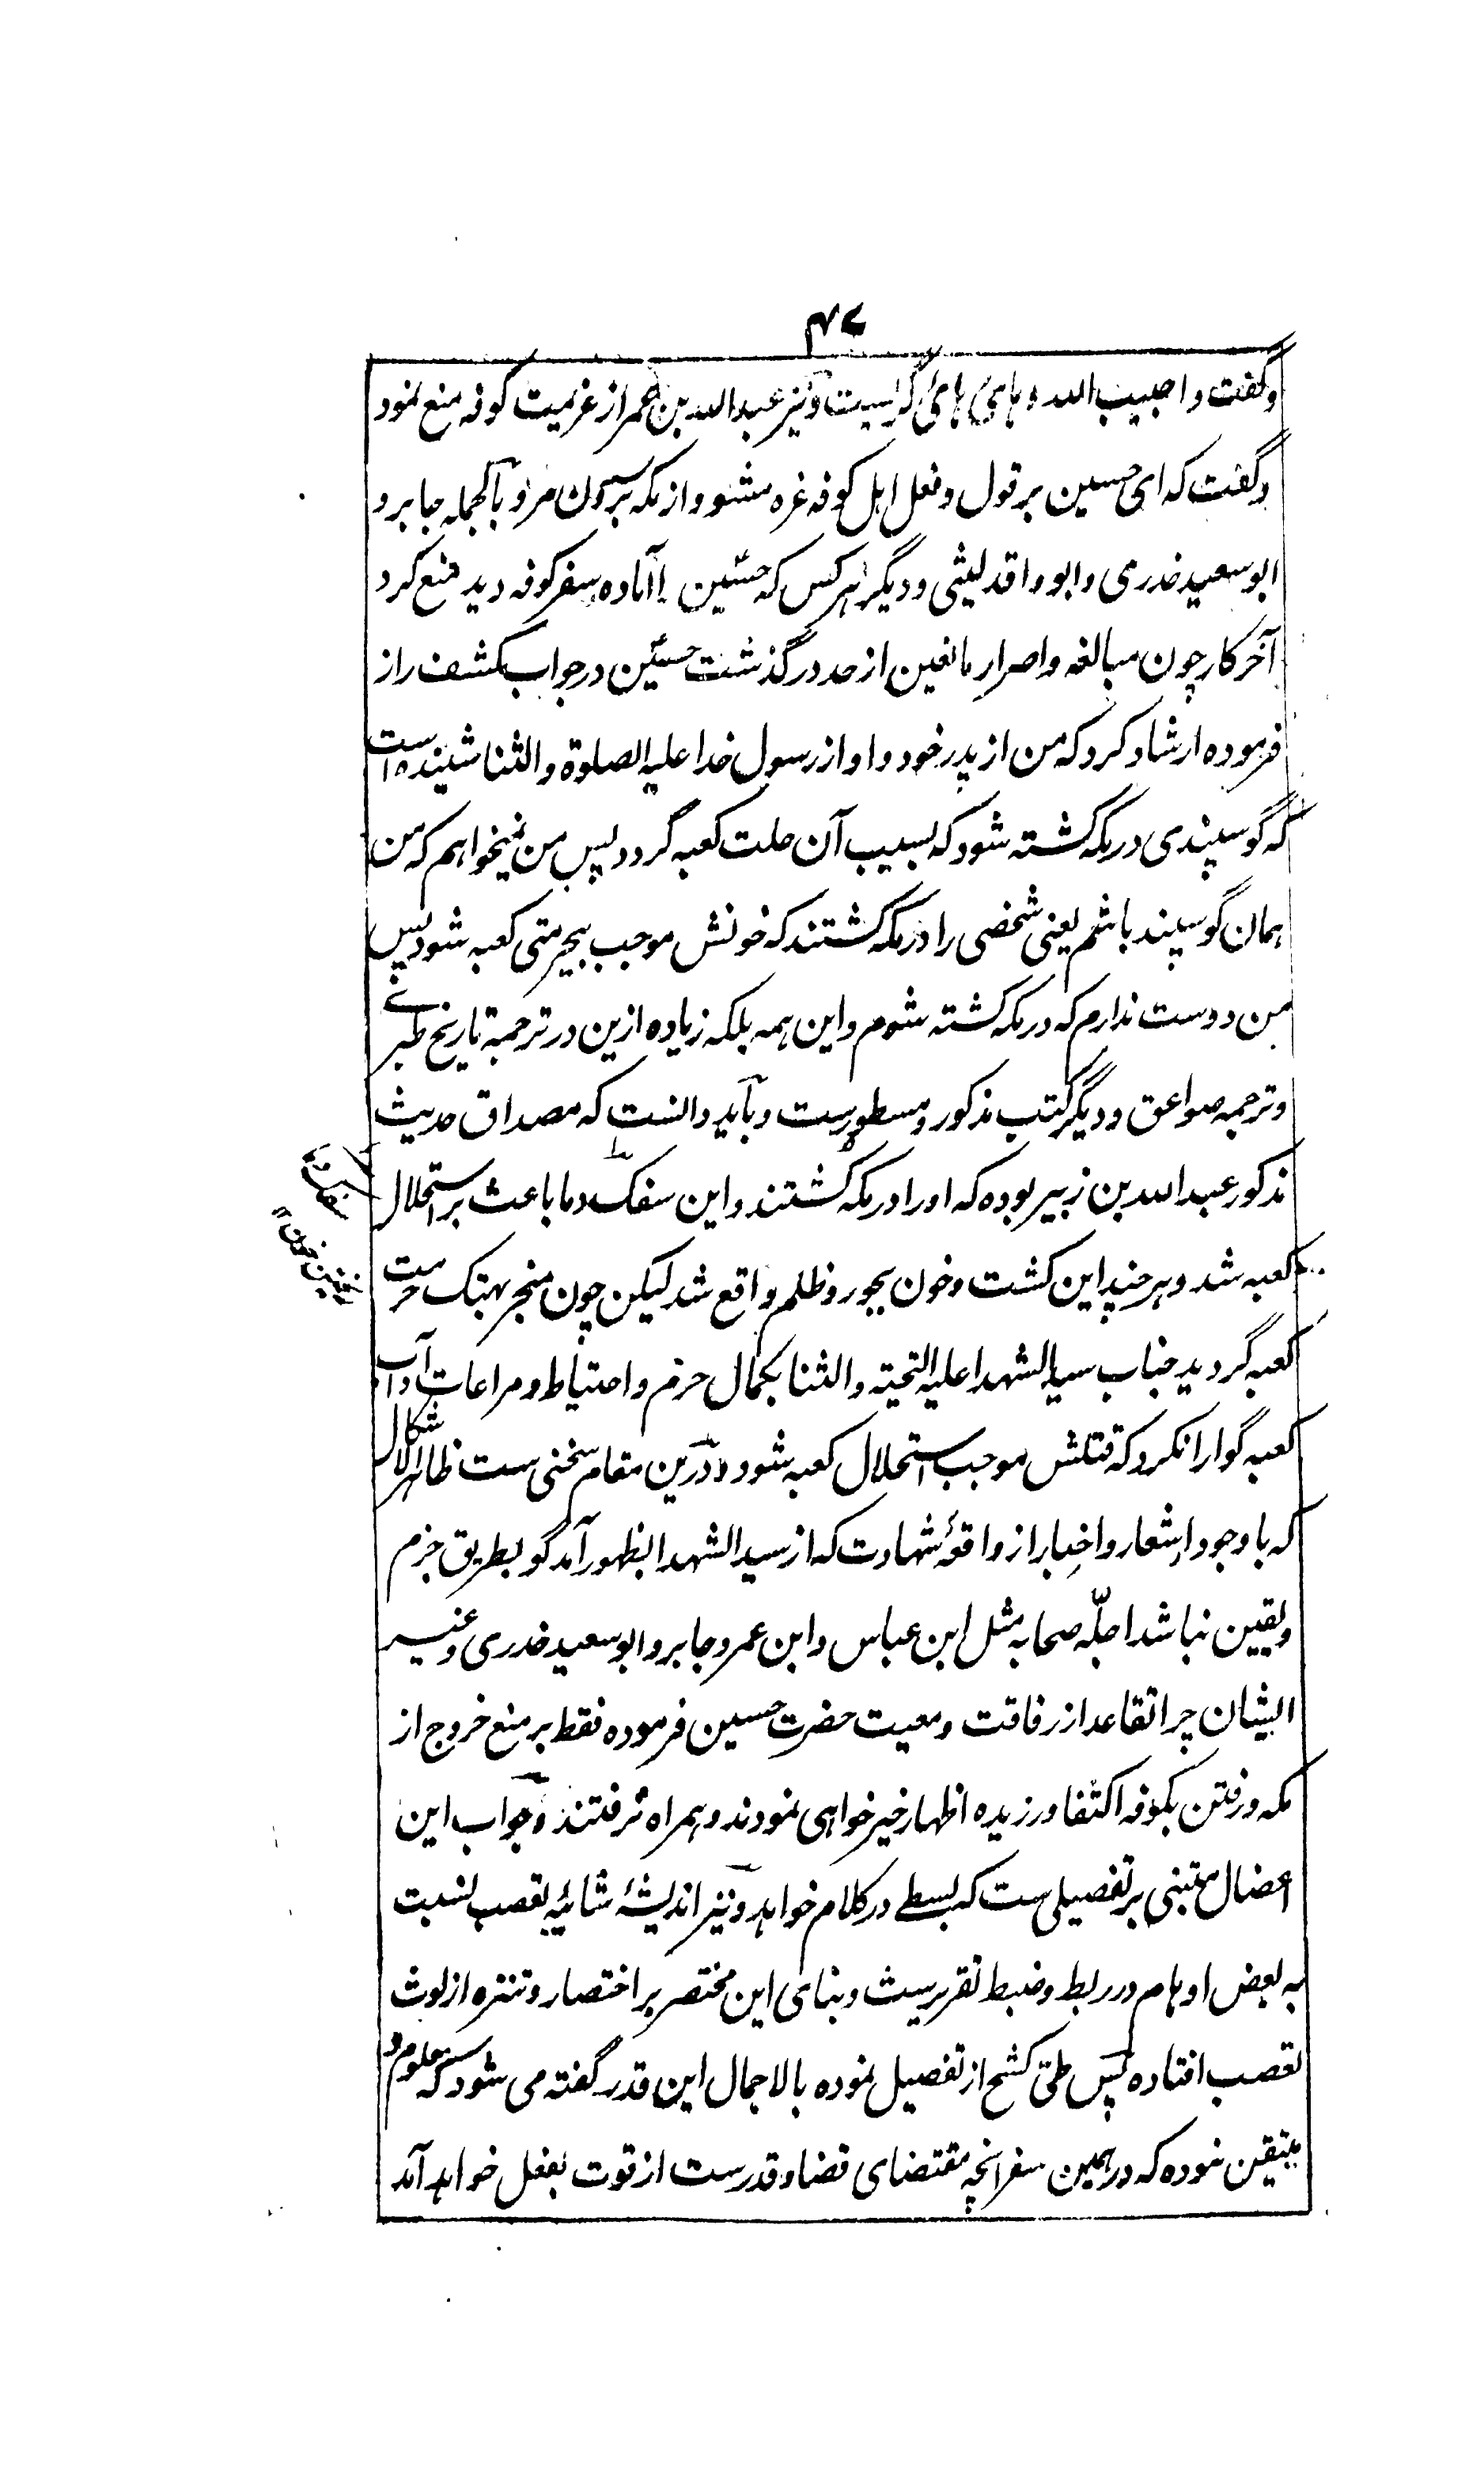 ۴۷
وگفت وا حبیب الله و های های گریست و نیز عبد الله بن عمر از عزیمت کوفه منع نمود
وگفت که ای حسین بر قول و فعل اهل کوفه غره مشو و از مکه بیرون مرو بالجمله جابر و
ابو سعید خدری و ابو واقد لیثی و دیگر هر کس که حسین را آماده سفر کوفه دید منع کرد
آخر کار چون مبالغه و اصرار مانعین از حد درگذشت حسین در جواب کشف راز
فرموده ارشاد کرد که من از پدر خود و او از رسول خدا علیه الصلوة والثنا شنیده است
که گوسپندی در مکه کشته شود که بسبب آن حلت کعبه گردد پس من نمیخواهم که من
همان گوسپند باشم یعنی شخصی را در مکه کشتند که خونش موجب بیحرمتی کعبه شود پس
من دوست ندارم که در مکه کشته شوم و این همه بلکه زیاده ازین در ترجمهٔ تاریخ طبرے
و ترجمه صواعق و دیگر کتب مذکور و مسطورست و باید دانست که مصداق حدیث
مذکور عبد الله بن زبیر بوده که او را در مکه کشتند و این سفک دما باعث بر استحلال
کعبه شد و هر چند این کشت و خون بجور و ظلم واقع شد لیکن چون منجر بهتک حرمت
کعبه گردید جناب سید الشهدا علیه التحیته والثنا بکمال حزم و احتیاط و مراعات آداب
کعبه گوارا نکرد که قتلش موجب استحلال کعبه شود و درین مقام سخنی ست ظاهر الاشکال
که با وجود اِشعار و اخبار از واقعهٔ شهادت که از سید الشهدا بظهور آمد گو بطریق جزم
و یقین نباشد اجلّه صحابه مثل ابن عباس و ابن عمر و جابر و ابو سعید خدری و غیر
ایشان چرا تقاعد از رفاقت و معیت حضرت حسین فرموده فقط بر منع خروج از
مکه و رفتن بکوفه اکتفا ورزیده اظهار خیر خواهی نمودند و همراه نرفتند و جواب این
اعضال مبتنی بر تفصیلی ست که بسطے در کلام خواهد و نیز اندیشهٔ شائبهٔ تعصب بنسبت
به بعض اوهام در ربط و ضبط تقریرست و بنای این مختصر بر اختصار و تنزه از لوث
تعصب افتاده پس طی کشح از تفصیل نموده بالاجمال این قدر گفته می شود که معلوم و
متیقن نبوده که در همین سفر آنچه مقتضای قضا و قدرست از قوت بفعل خواهد آمد
سفک دما
ریختن خون ۱۲